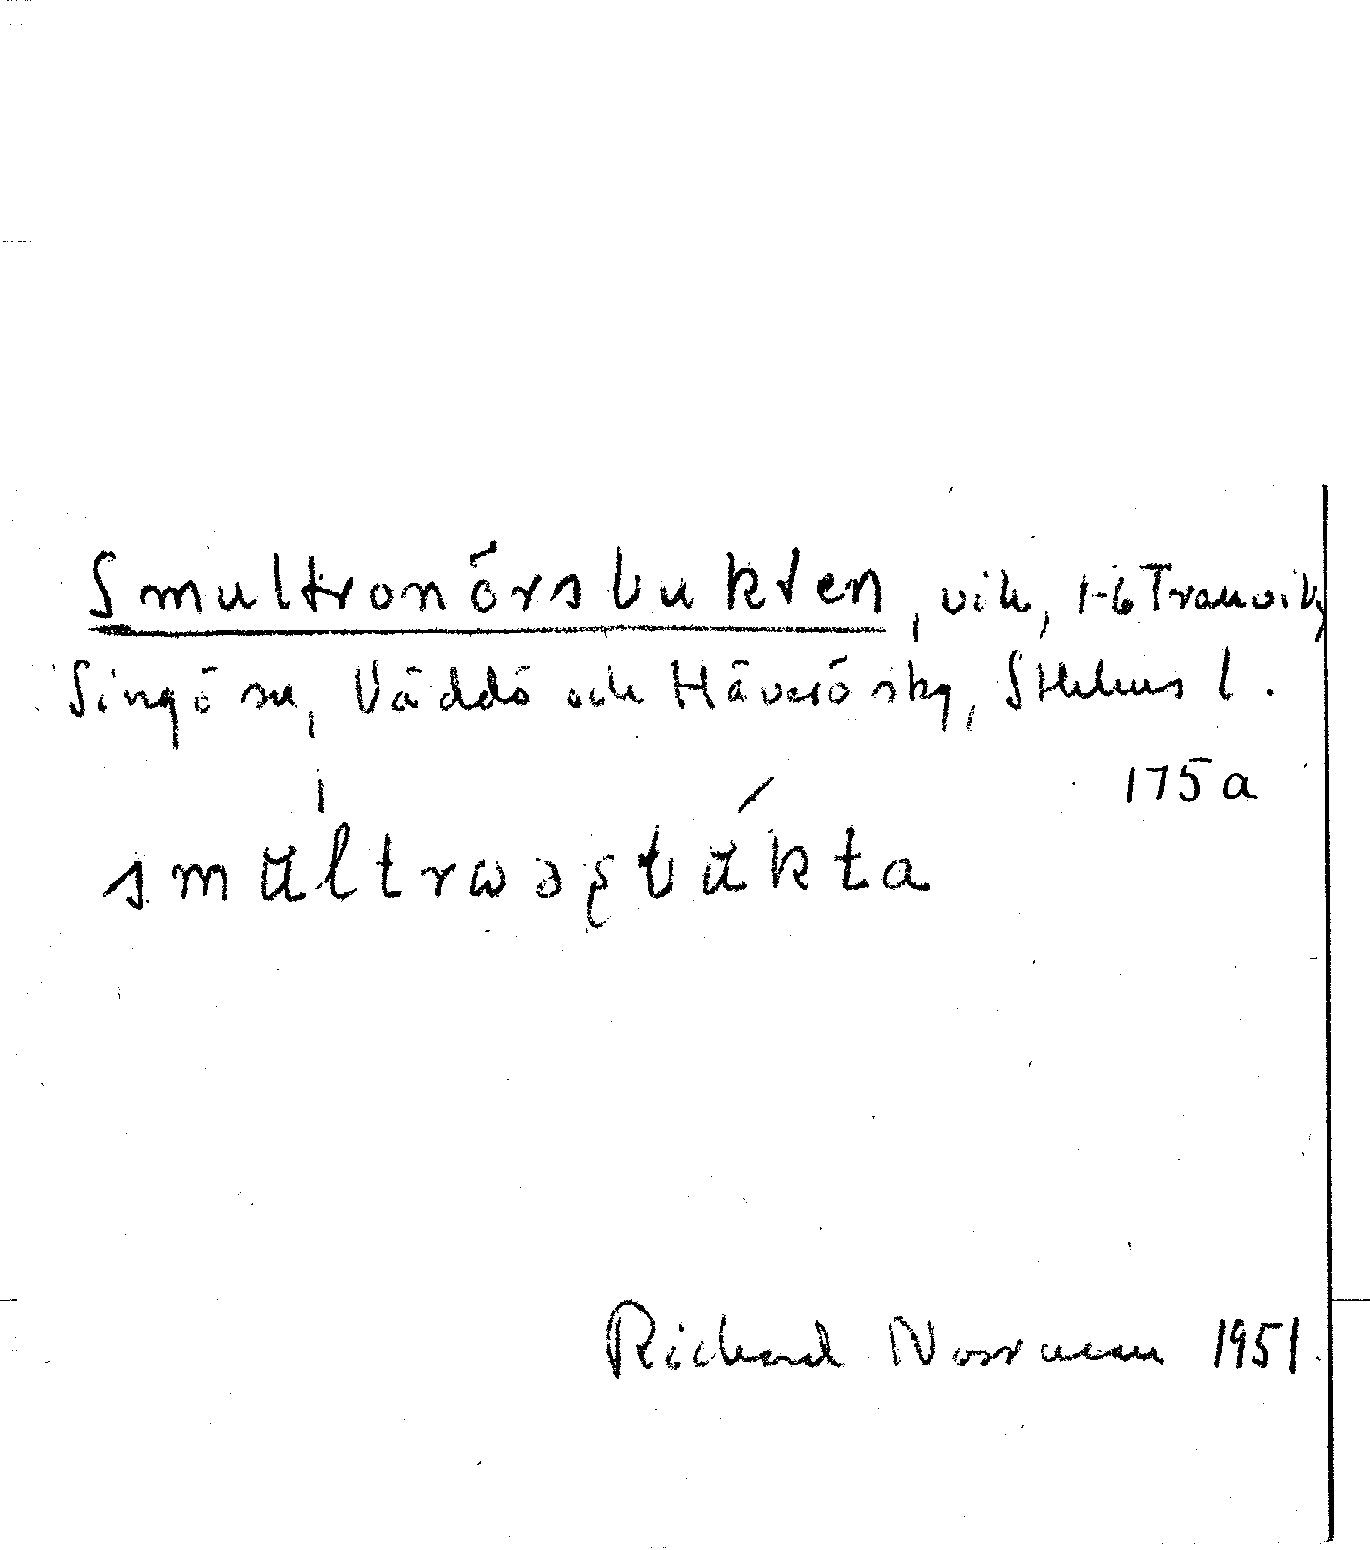 Smultronörsbukten, vik, 1-6 Tranvik,
Singö sn, Väddö och Häverö skg, Sthlms l.
175a
smultrωəʂbukta
Richard Norrman 1951.